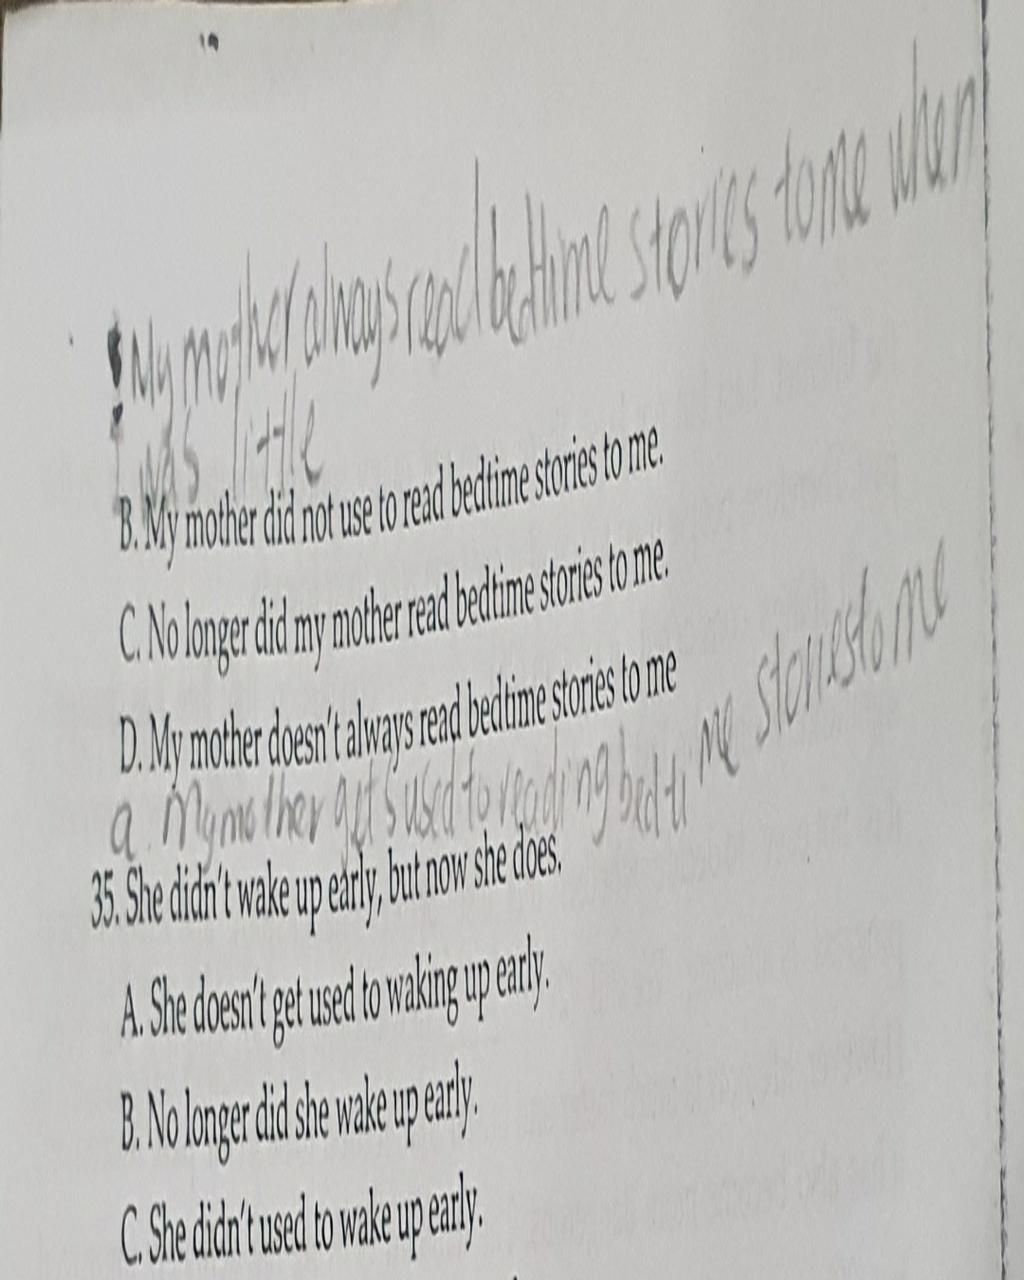 My mother always read bedtime stories to me when
I was little
B. My mother did not use to read bedtime stories to me.
C. No longer did my mother read bedtime stories to me.
D. My mother doesn't always read bedtime stories to me
a. My mother gets used to reading bedtime stories to me
35. She didn't wake up early, but now she does.
A. She doesn't get used to waking up early.
B. No longer did she wake up early.
C. She didn't used to wake up early.